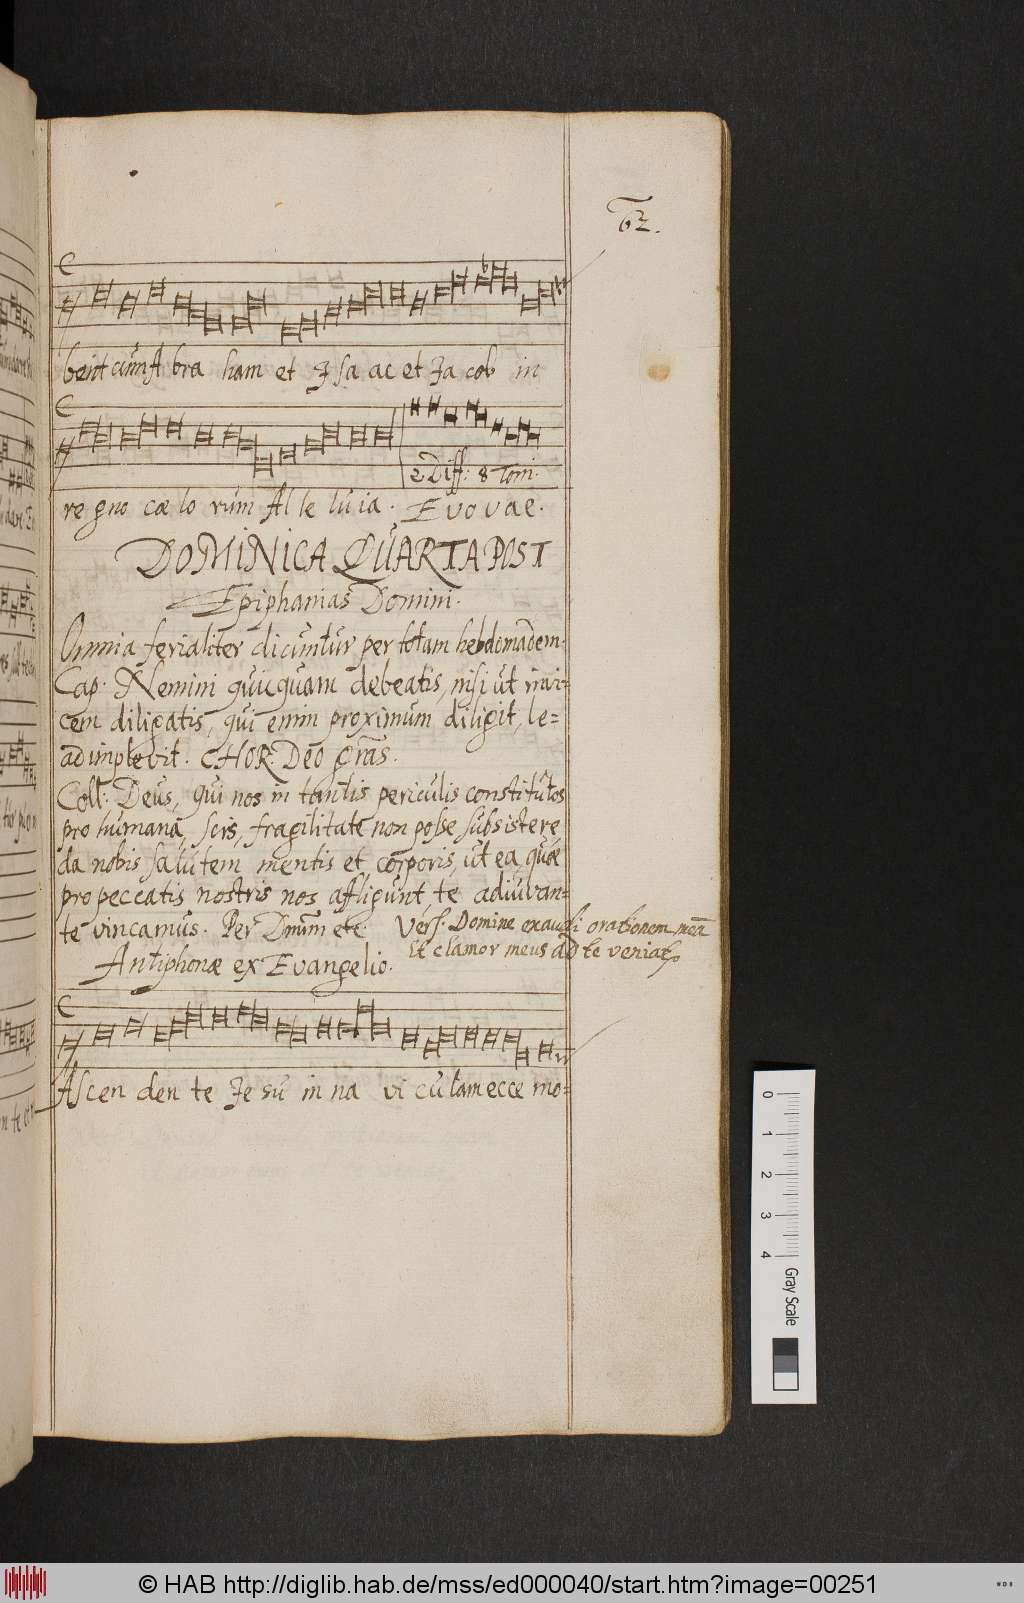 62.
bent cum Abra ham et Isa ac et Ia cob in
2 Diff: 8 Toni.
re gno cæ lo rum Al le lu ia. Evovae.
DOMINICA QUARTA POST
Epiphanias Domini.
Omnia ferialiter dicuntur per totam hebdomadem.
Cap. Nemini quicquam debeatis, nisi ut invi-
cem diligatis, qui enim proximum diligit, le=
adimplevit. CHOR. Deo gras.
Coll. Deus, qui nos in tantis periculis constitutos
pro humana, scis, fragilitate non posse subsistere,
da nobis salutem mentis et corporis, ut ea, quæ
pro peccatis nostris nos affligunt, te adiuvan=
te vincamus. Per Dnum etc. Vers. Domine exaudi orationem meā
Et clamor meus ad te veniat.
Antiphonæ ex Evangelio.
Ascen den te Ie su in na vi cu lam ecce mo=
0 1 2 3 4 Gray Scale
© HAB http://diglib.hab.de/mss/ed000040/start.htm?image=00251